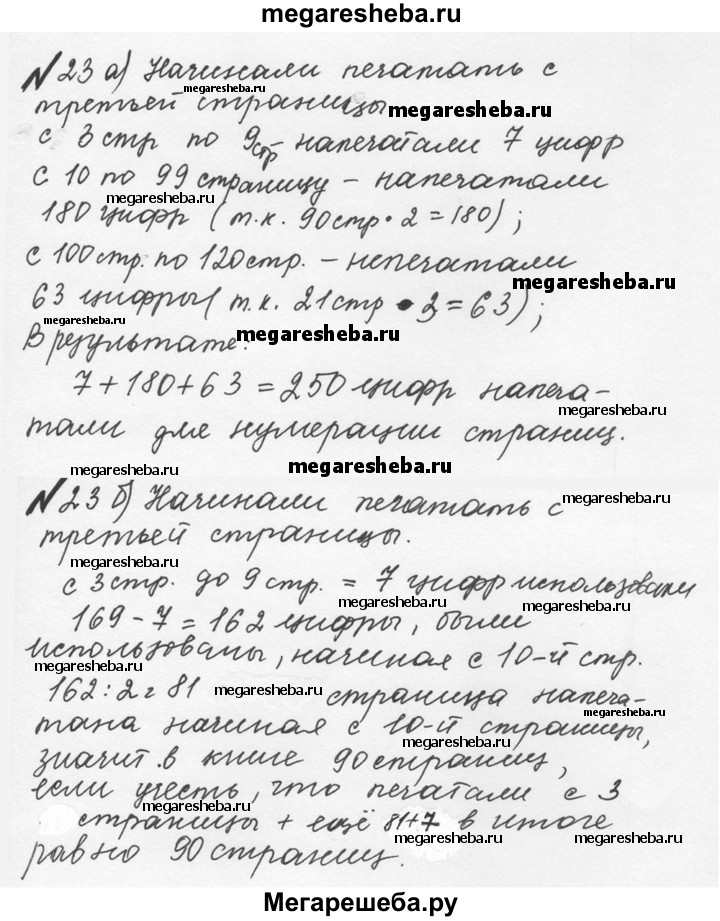 megaresheba.ru
№23 а) Начинали печатать с
третьей страницы
megaresheba.ru
с 3 стр по 9стр - напечатали 7 цифр
с 10 по 99 страницу - напечатали
megaresheba.ru
180 цифр (т.к. 90стр · 2 = 180);
с 100стр. по 120стр. - непечатали
63 цифры (т.к. 21стр · 3 = 63);
megaresheba.ru
megaresheba.ru
В результате:
7+180+63 = 250 цифр напеча-
megaresheba.ru
тали для нумерации страниц.
megaresheba.ru
megaresheba.ru
№23 б) Начинали печатать с
третьей страницы.
megaresheba.ru
с 3стр. до 9 стр. = 7 цифр использовали
megaresheba.ru
megaresheba.ru
169 - 7 = 162 цифры, были
использованы, начиная с 10-й стр.
megaresheba.ru
162 : 2 = 81 страница напеча-
megaresheba.ru
megaresheba.ru
тана начиная с 10-й страницы,
megaresheba.ru
значит в книге 90 страниц,
если учесть, что печатали с 3
megaresheba.ru
страницы + ещё 81+7 в итоге
равно 90 страниц.
megaresheba.ru
Мегарешеба.ру